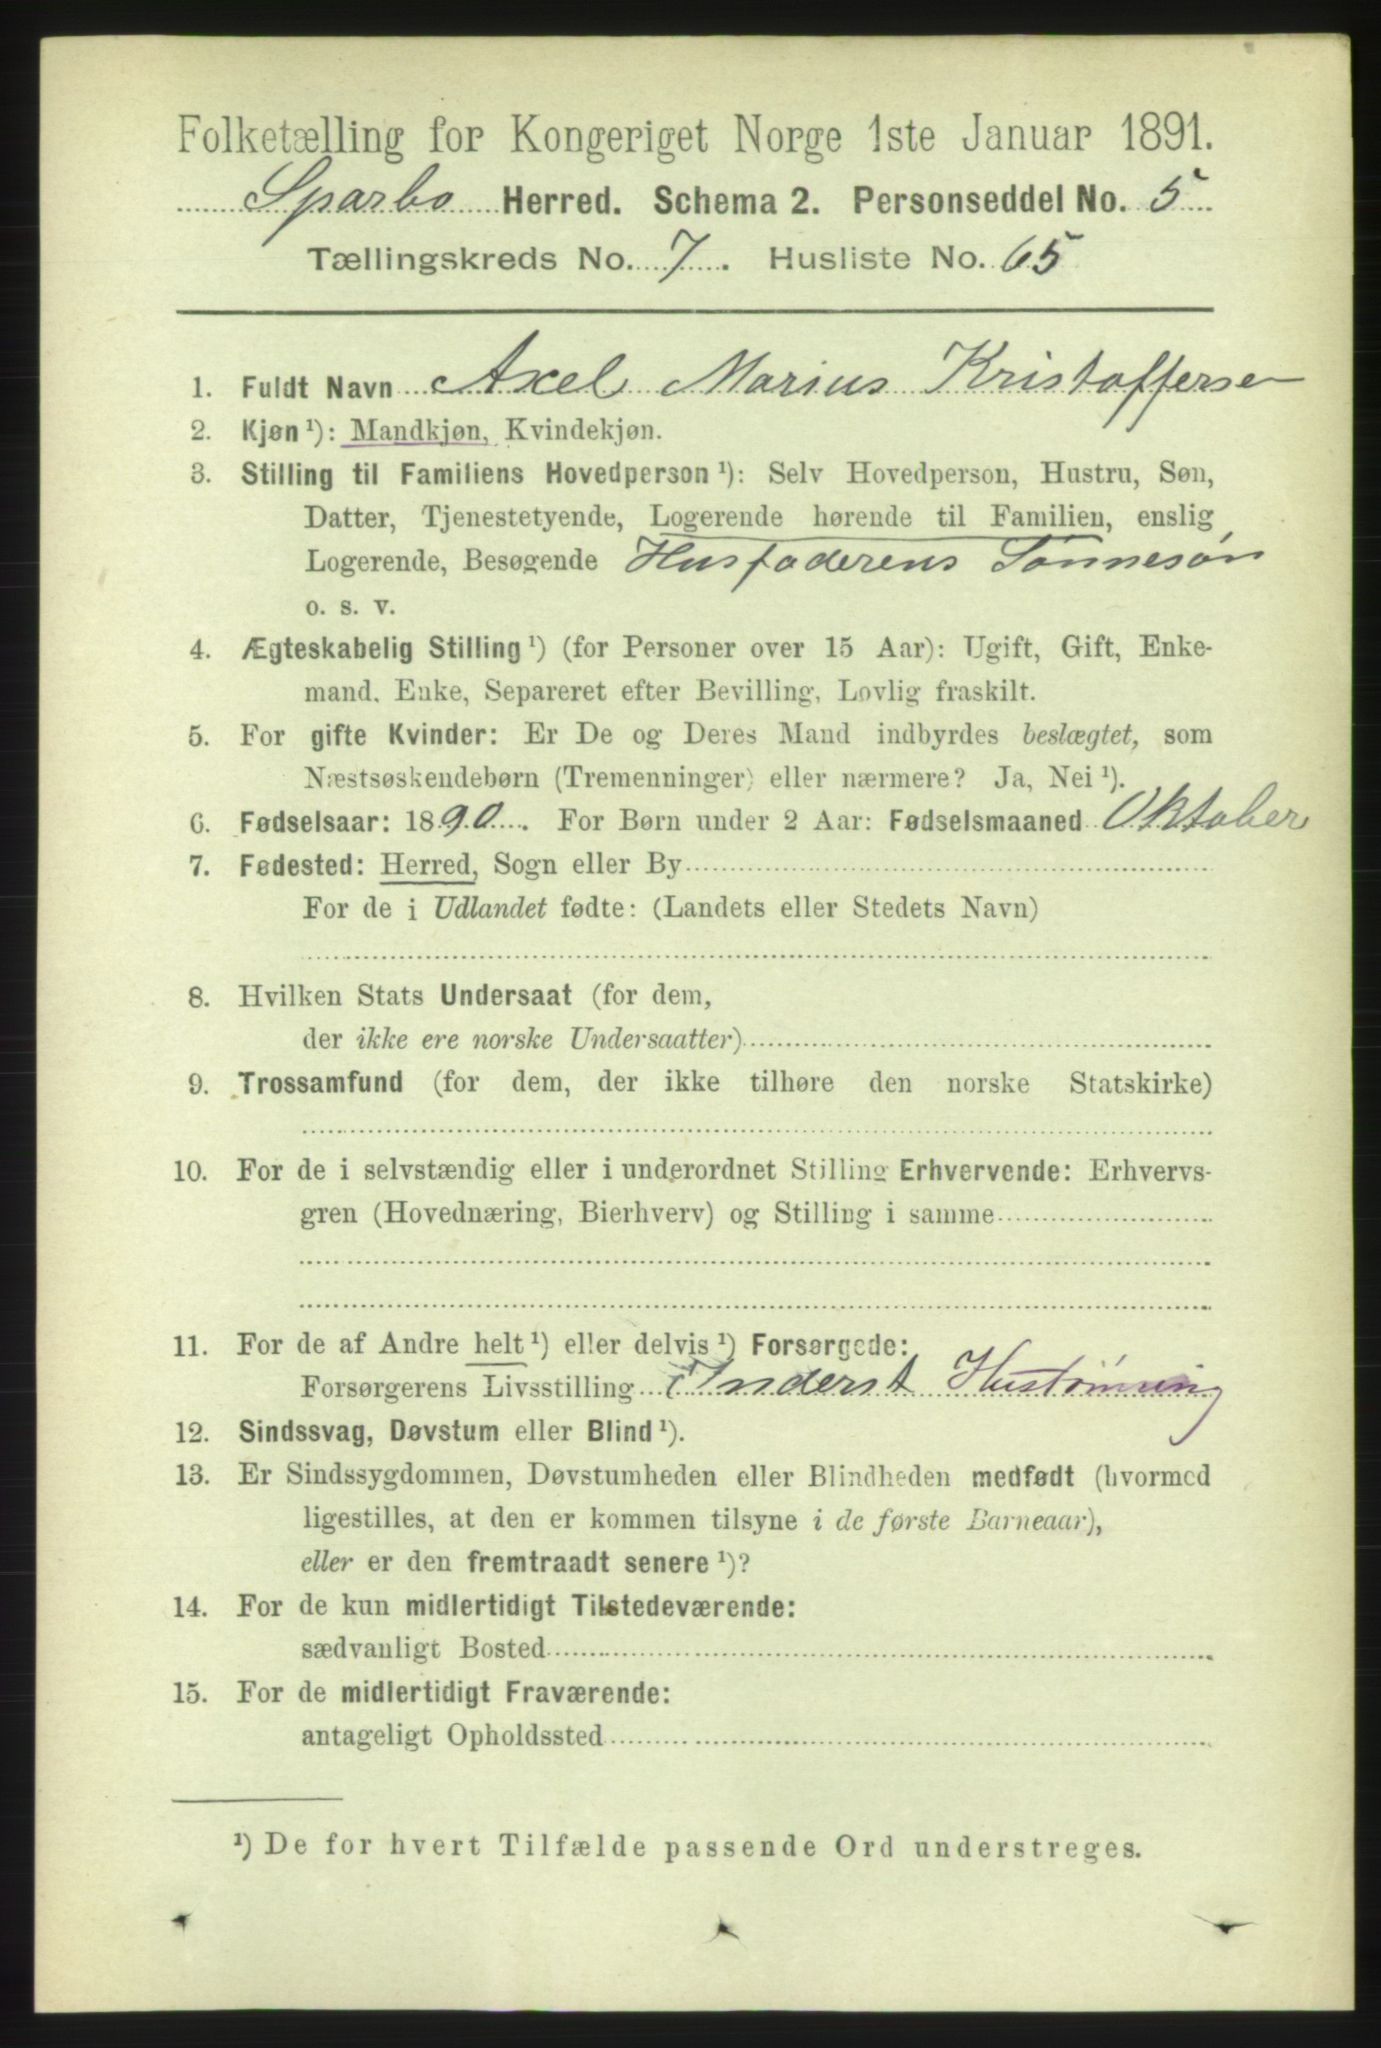 Folketælling for Kongeriget Norge 1ste Januar 1891.
Sparbo Herred. Schema 2. Personseddel No. 5
Tællingskreds No. 7. Husliste No. 65
1. Fuldt Navn Axel Marius Kristoffersen
2. Kjøn ¹): Mandkjøn, Kvindekjøn.
3. Stilling til Familiens Hovedperson ¹): Selv Hovedperson, Hustru, Søn,
Datter, Tjenestetyende, Logerende hørende til Familien, enslig
Logerende, Besøgende Husfaderens Sønnesøn
o. s. v.
4. Ægteskabelig Stilling ¹) (for Personer over 15 Aar): Ugift, Gift, Enke-
mand, Enke, Separeret efter Bevilling, Lovlig fraskilt.
5. For gifte Kvinder: Er De og Deres Mand indbyrdes beslægtet, som
Næstsøskendebørn (Tremenninger) eller nærmere? Ja, Nei ¹).
6. Fødselsaar: 1890. For Børn under 2 Aar: Fødselsmaaned Oktober
7. Fødested: Herred, Sogn eller By
For de i Udlandet fødte: (Landets eller Stedets Navn)
8. Hvilken Stats Undersaat (for dem,
der ikke ere norske Undersaatter)
9. Trossamfund (for dem, der ikke tilhøre den norske Statskirke)
10. For de i selvstændig eller i underordnet Stilling Erhvervende: Erhvervs-
gren (Hovednæring, Bierhverv) og Stilling i samme
11. For de af Andre helt ¹) eller delvis ¹) Forsørgede:
Forsørgerens Livsstilling Inderst
12. Sindssvag, Døvstum eller Blind ¹).
13. Er Sindssygdommen, Døvstumheden eller Blindheden medfødt (hvormed
ligestilles, at den er kommen tilsyne i de første Barneaar),
eller er den fremtraadt senere ¹)?
14. For de kun midlertidigt Tilstedeværende:
sædvanligt Bosted
15. For de midlertidigt Fraværende:
antageligt Opholdssted
¹) De for hvert Tilfælde passende Ord understreges.